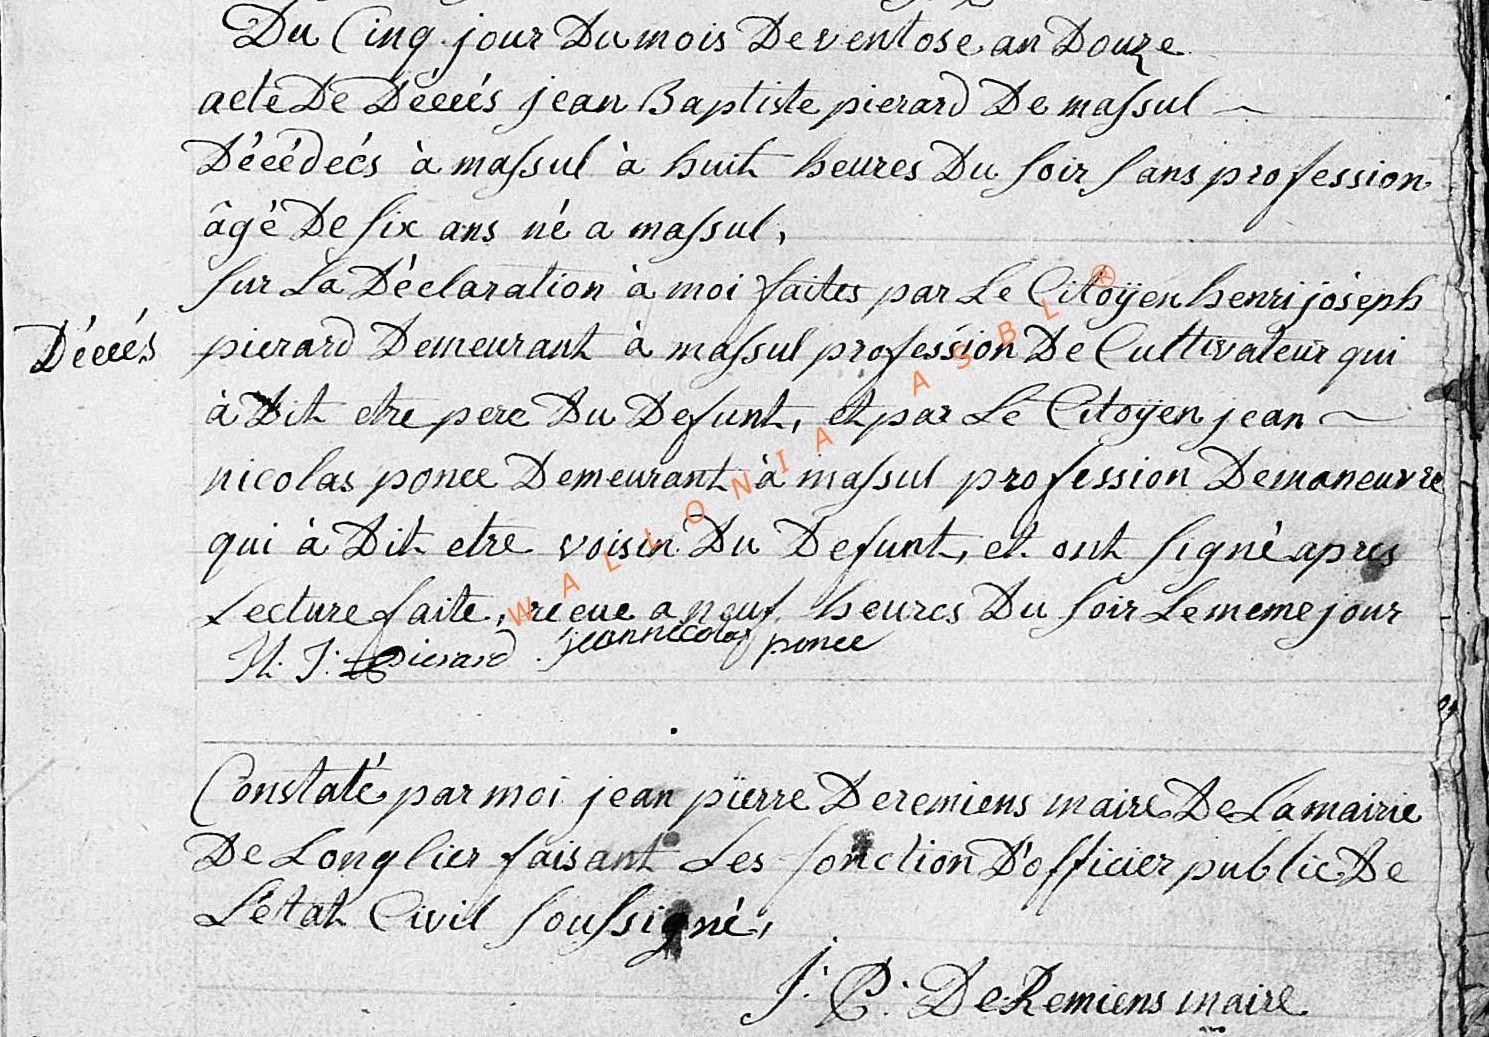 Du Cinq jour Du mois De ventose an Douze
acte De Décés jean Baptiste pierard De massul
Décédeés à massul à huit heures Du soir sans profession
âgé De six ans né a massul,
sur La Déclaration à moi faites par Le Citoÿen henri joseph
Décés
pierard Demeurant à massul profession De Cultivateur qui
à Dit etre pere Du Defunt, et par Le Citoÿen jean
nicolas ponce Demeurant à massul profession De maneuvre
qui à Dit etre voisin Du Defunt, et ont signé apres
Lecture faite, recue a neuf heures Du soir Le meme jour
H. J. pierard jean nicolas ponce
Constaté par moi jean pierre Deremiens maire De La mairie
De Longlier faisant Les fonction D'officier public De
L'etat Civil soussigné,
J. P. DeRemiens maire
WALLONIA ASBL ®